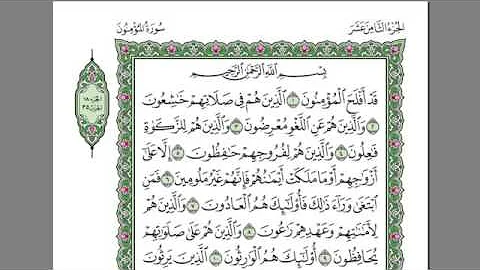 الجزء الثامن عشر
سورة المؤمنون
بِسْمِ اللَّهِ الرَّحْمَٰنِ الرَّحِيمِ
قَدْ أَفْلَحَ الْمُؤْمِنُونَ ١ الَّذِينَ هُمْ فِي صَلَاتِهِمْ خَاشِعُونَ
٢ وَالَّذِينَ هُمْ عَنِ اللَّغْوِ مُعْرِضُونَ ٣ وَالَّذِينَ هُمْ لِلزَّكَوٰةِ
فَاعِلُونَ ٤ وَالَّذِينَ هُمْ لِفُرُوجِهِمْ حَافِظُونَ ٥ إِلَّا عَلَىٰ
أَزْوَاجِهِمْ أَوْ مَا مَلَكَتْ أَيْمَانُهُمْ فَإِنَّهُمْ غَيْرُ مَلُومِينَ ٦ فَمَنِ
ابْتَغَىٰ وَرَاءَ ذَٰلِكَ فَأُولَٰئِكَ هُمُ الْعَادُونَ ٧ وَالَّذِينَ هُمْ
لِأَمَانَاتِهِمْ وَعَهْدِهِمْ رَاعُونَ ٨ وَالَّذِينَ هُمْ عَلَىٰ صَلَوَاتِهِمْ
يُحَافِظُونَ ٩ أُولَٰئِكَ هُمُ الْوَارِثُونَ ١٠ الَّذِينَ يَرِثُونَ